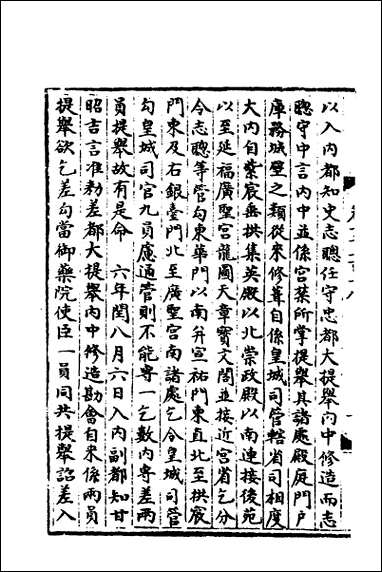 以入内都知史志聰任守忠都大提舉内中修造而志
聰守中言内中並係宫菜所掌提舉其諸處殿庭門户
庫務城壁之類從來修葺自係皇城司管轄省司相度
大内自紫宸垂拱集英殿以北崇政殿以南連接後苑
以至延福廣聖宫龍圖天章寳文閣並接近宫省乞分
今志聰等管勾東華門以南并宣祐門東直北至拱宸
門東及右銀臺門北至廣聖宫南諸處乞令皇城司管
勾皇城司官九員慮通管則不能専一乞數内専差兩
員提舉故有是命 六年閏八月六日入内副都知甘
昭吉言准勑差都大提舉内中修造勘會自來係兩員
提舉欲乞差勾當御藥院使臣一員同共提舉詔差入